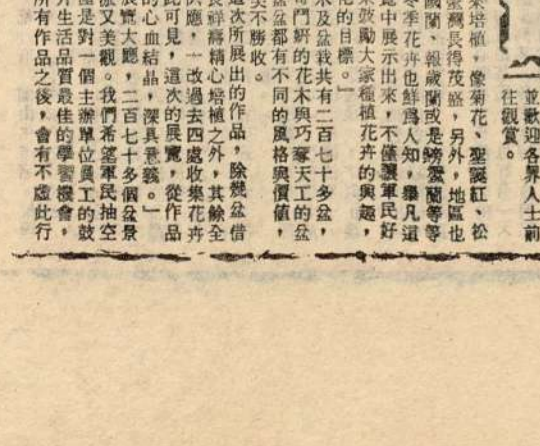 並歡迎各界人士前
往觀賞。
來培植，像菊花、聖誕紅、松
葉蘭長得茂盛，另外，地區也
國蘭、報歲蘭或是蘭等等
冬季花卉也鮮爲人知，舉凡這
覽中展示出來，不僅讓軍民好
來鼓勵大家種植花卉的興趣，
化的目標。」
木及盆栽共有二百七十多盆，
奇鬥妍的花木與巧奪天工的盆
盆盆都有不同的風格與價値，
美不勝收。
這次所展出的作品，除幾盆借
長祥壽精心培植之外，其餘全
供應，一改過去四處收集花卉
此可見，這次的展覽，從作品
的心血結晶，深具意義。」
展覽大廳，二百七十多個盆景
又美觀。我們希望軍民抽空
僅是對一個主辦單位員工的鼓
升生活品質最佳的學習機會，
所有作品之後，會有不虛此行